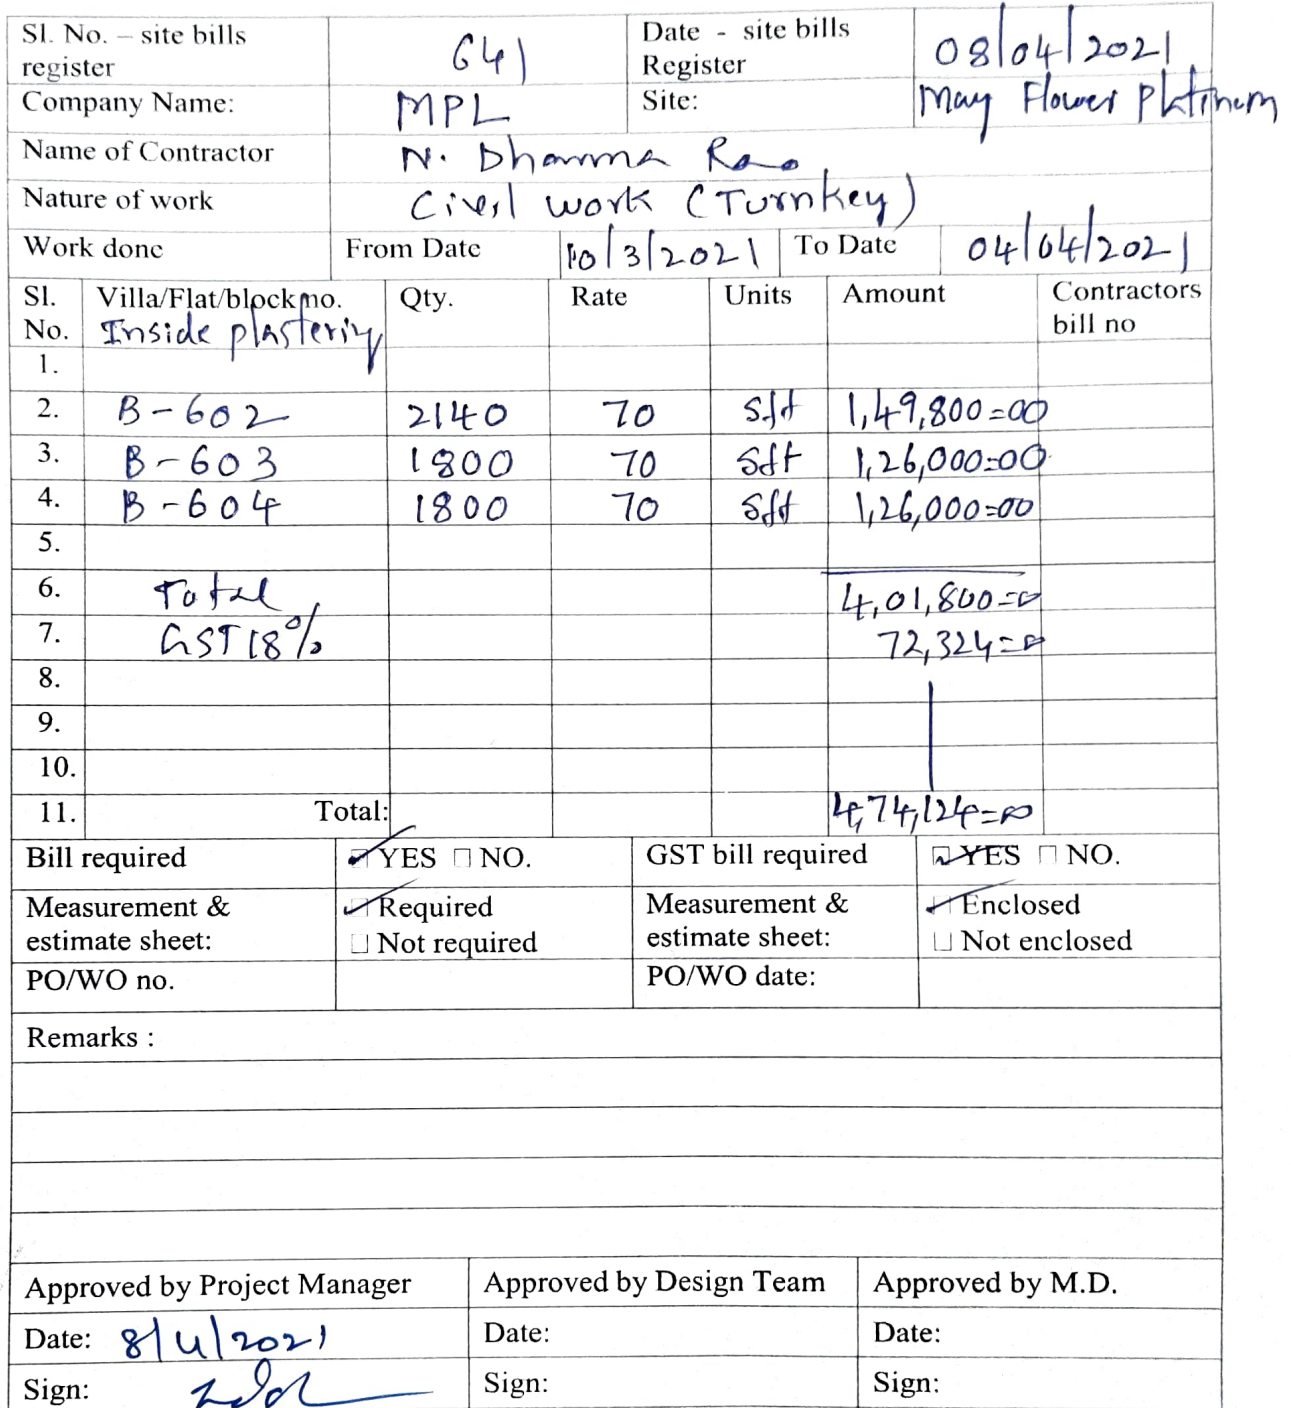 Sl. No. – site bills register 641 Date - site bills Register 08/04/2021
Company Name: MPL Site: May Flower Platinum
Name of Contractor N. Dhamma Rao
Nature of work Civil work (Turnkey)
Work done From Date 10/3/2021 To Date 04/04/2021
Sl. No. Villa/Flat/block no. Qty. Rate Units Amount Contractors bill no
Inside plastering
1.
2. B-602 2140 70 sft 1,49,800=00
3. B-603 1800 70 sft 1,26,000=00
4. B-604 1800 70 sft 1,26,000=00
5.
6. Total 4,01,800=00
7. GST 18% 72,324=00
8.
9.
10.
11. Total: 4,74,124=00
Bill required ☑ YES □ NO. GST bill required ☑ YES □ NO.
Measurement & estimate sheet: ☑ Required Measurement & estimate sheet: ☑ Enclosed
□ Not required □ Not enclosed
PO/WO no. PO/WO date:
Remarks :
Approved by Project Manager Approved by Design Team Approved by M.D.
Date: 8/4/2021 Date: Date:
Sign: Sign: Sign: